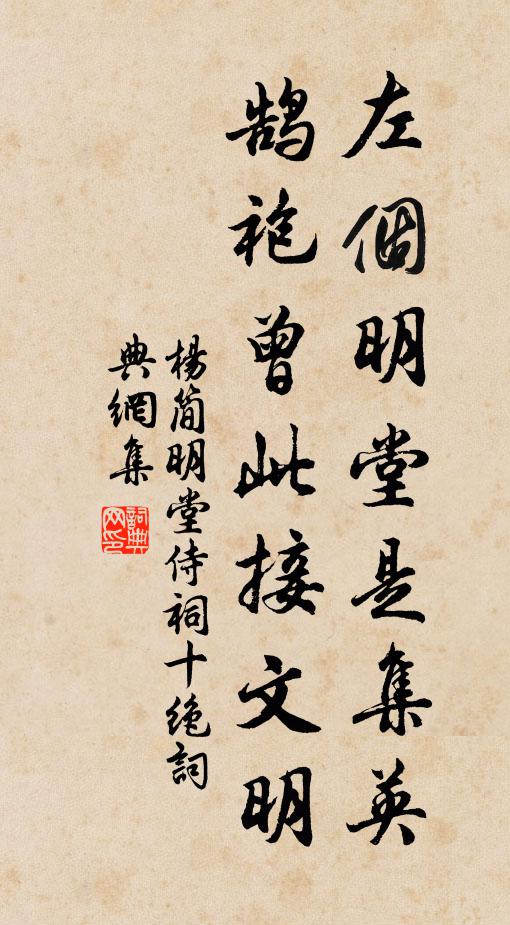 左個明堂是集英
鹄袍曾此接文明
楊简明堂侍祠十绝詞
典網集
詞典
网印